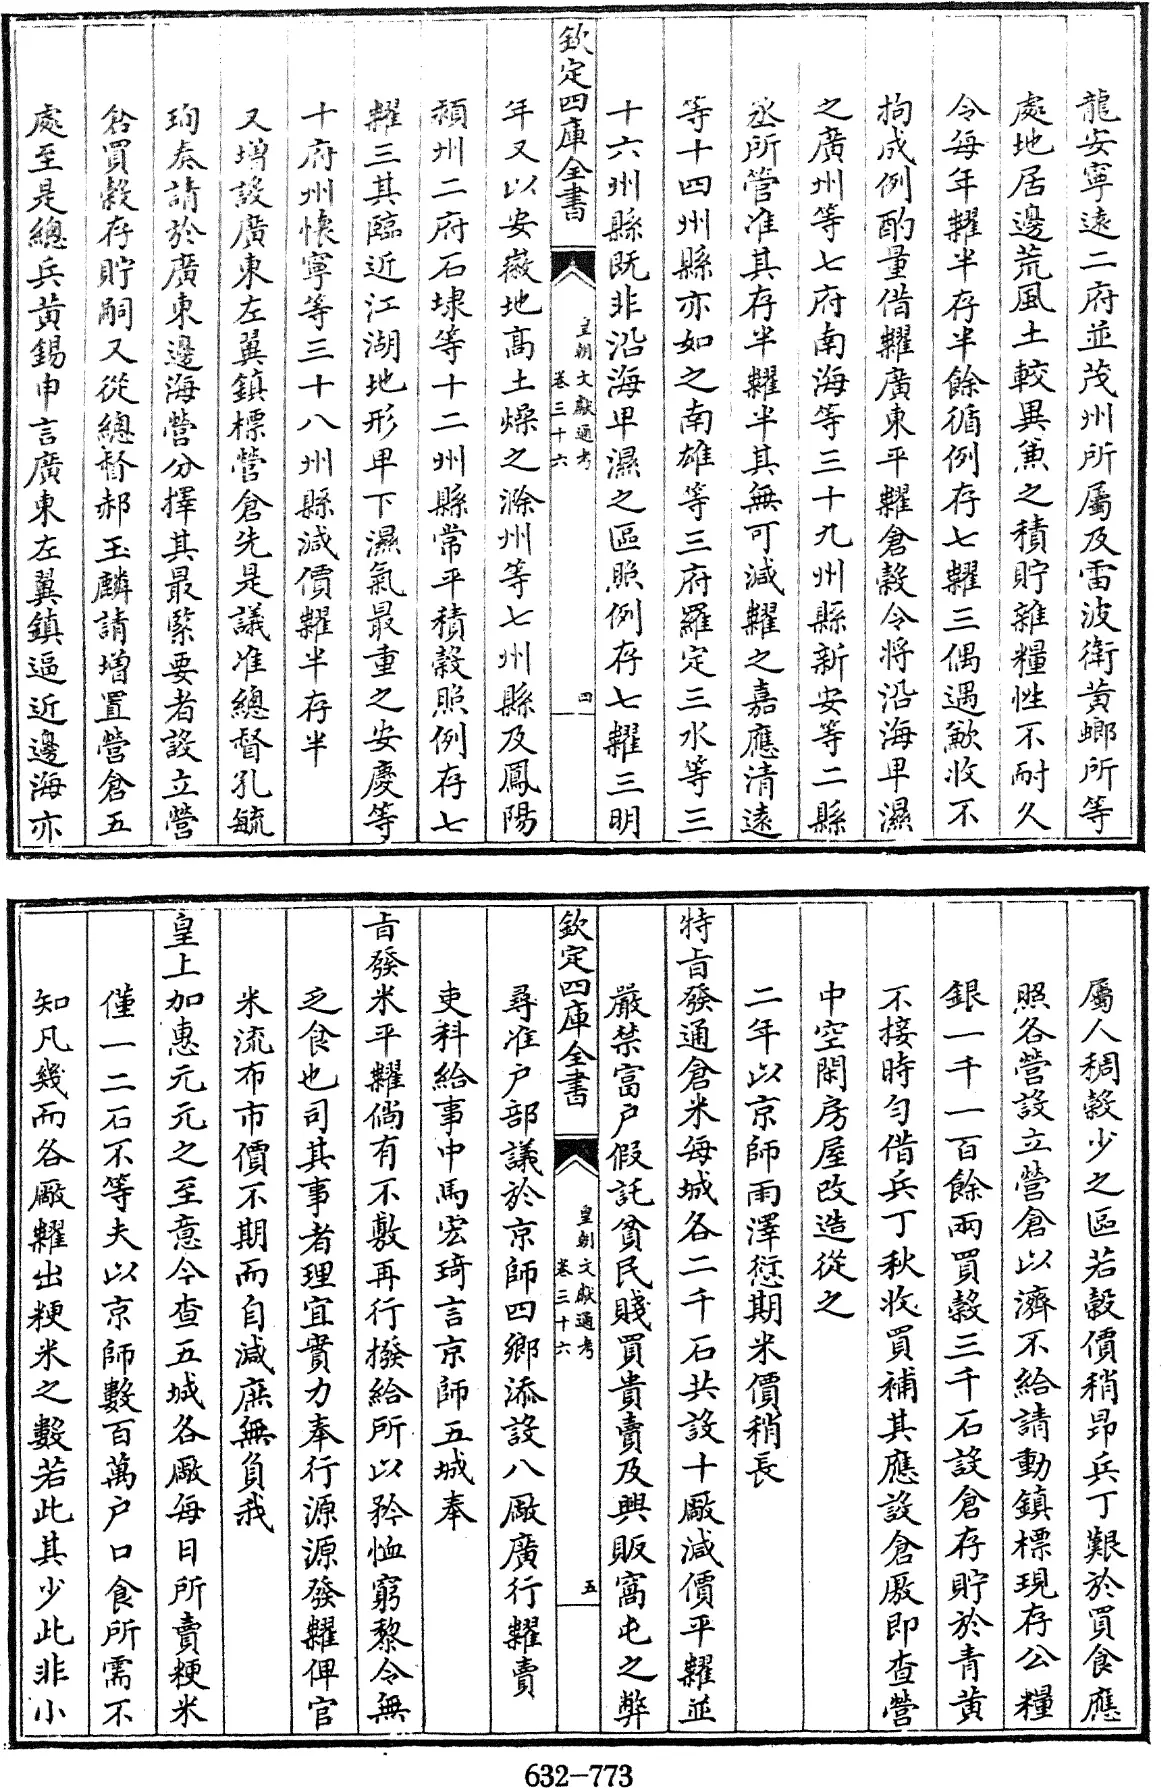 龍安寧遠二府並茂州所屬及雷波衛黄螂所等
處地居邊荒風土較異兼之積貯雜糧性不耐久
令每年糶半存半餘循例存七糶三偶遇歉收不
拘成例酌量借糶廣東平糶倉穀令將沿海卑濕
之廣州等七府南海等三十九州縣新安等二縣
丞所管准其存半糶半其無可減糶之嘉應清遠
等十四州縣亦如之南雄等三府羅定三水等三
十六州縣既非沿海卑濕之區照例存七糶三明
欽定四庫全書
皇朝文獻通考
卷三十六
四
年又以安徽地高土燥之滁州等七州縣及鳳陽
潁州二府石埭等十二州縣常平積穀照例存七
糶三其臨近江湖地形卑下濕氣最重之安慶等
十府州懷寧等三十八州縣減價糶半存半
又增設廣東左翼鎮標營倉先是議准總督孔毓
珣奏請於廣東邊海營分擇其最緊要者設立營
倉買穀存貯嗣又從總督郝玉麟請增置營倉五
處至是總兵黄錫申言廣東左翼鎮逼近邊海亦
屬人稠穀少之區若穀價稍昂兵丁艱於買食應
照各營設立營倉以濟不給請動鎮標現存公糧
銀一千一百餘兩買穀三千石設倉存貯於青黄
不接時匀借兵丁秋收買補其應設倉廒即查營
中空閒房屋改造從之
二年以京師雨澤愆期米價稍長
特旨發通倉米每城各二千石共設十廠減價平糶並
嚴禁富户假託貧民賤買貴賣及興販窩屯之弊
欽定四庫全書
皇朝文獻通考
卷三十六
五
尋准户部議於京師四鄉添設八廠廣行糶賣
吏科給事中馬宏琦言京師五城奉
旨發米平糶倘有不敷再行撥給所以矜恤窮黎令無
乏食也司其事者理宜實力奉行源源發糶俾官
米流布市價不期而自減庶無負我
皇上加惠元元之至意今查五城各廠每日所賣粳米
僅一二石不等夫以京師數百萬户口食所需不
知凡幾而各廠糶出粳米之數若此其少此非小
632-773